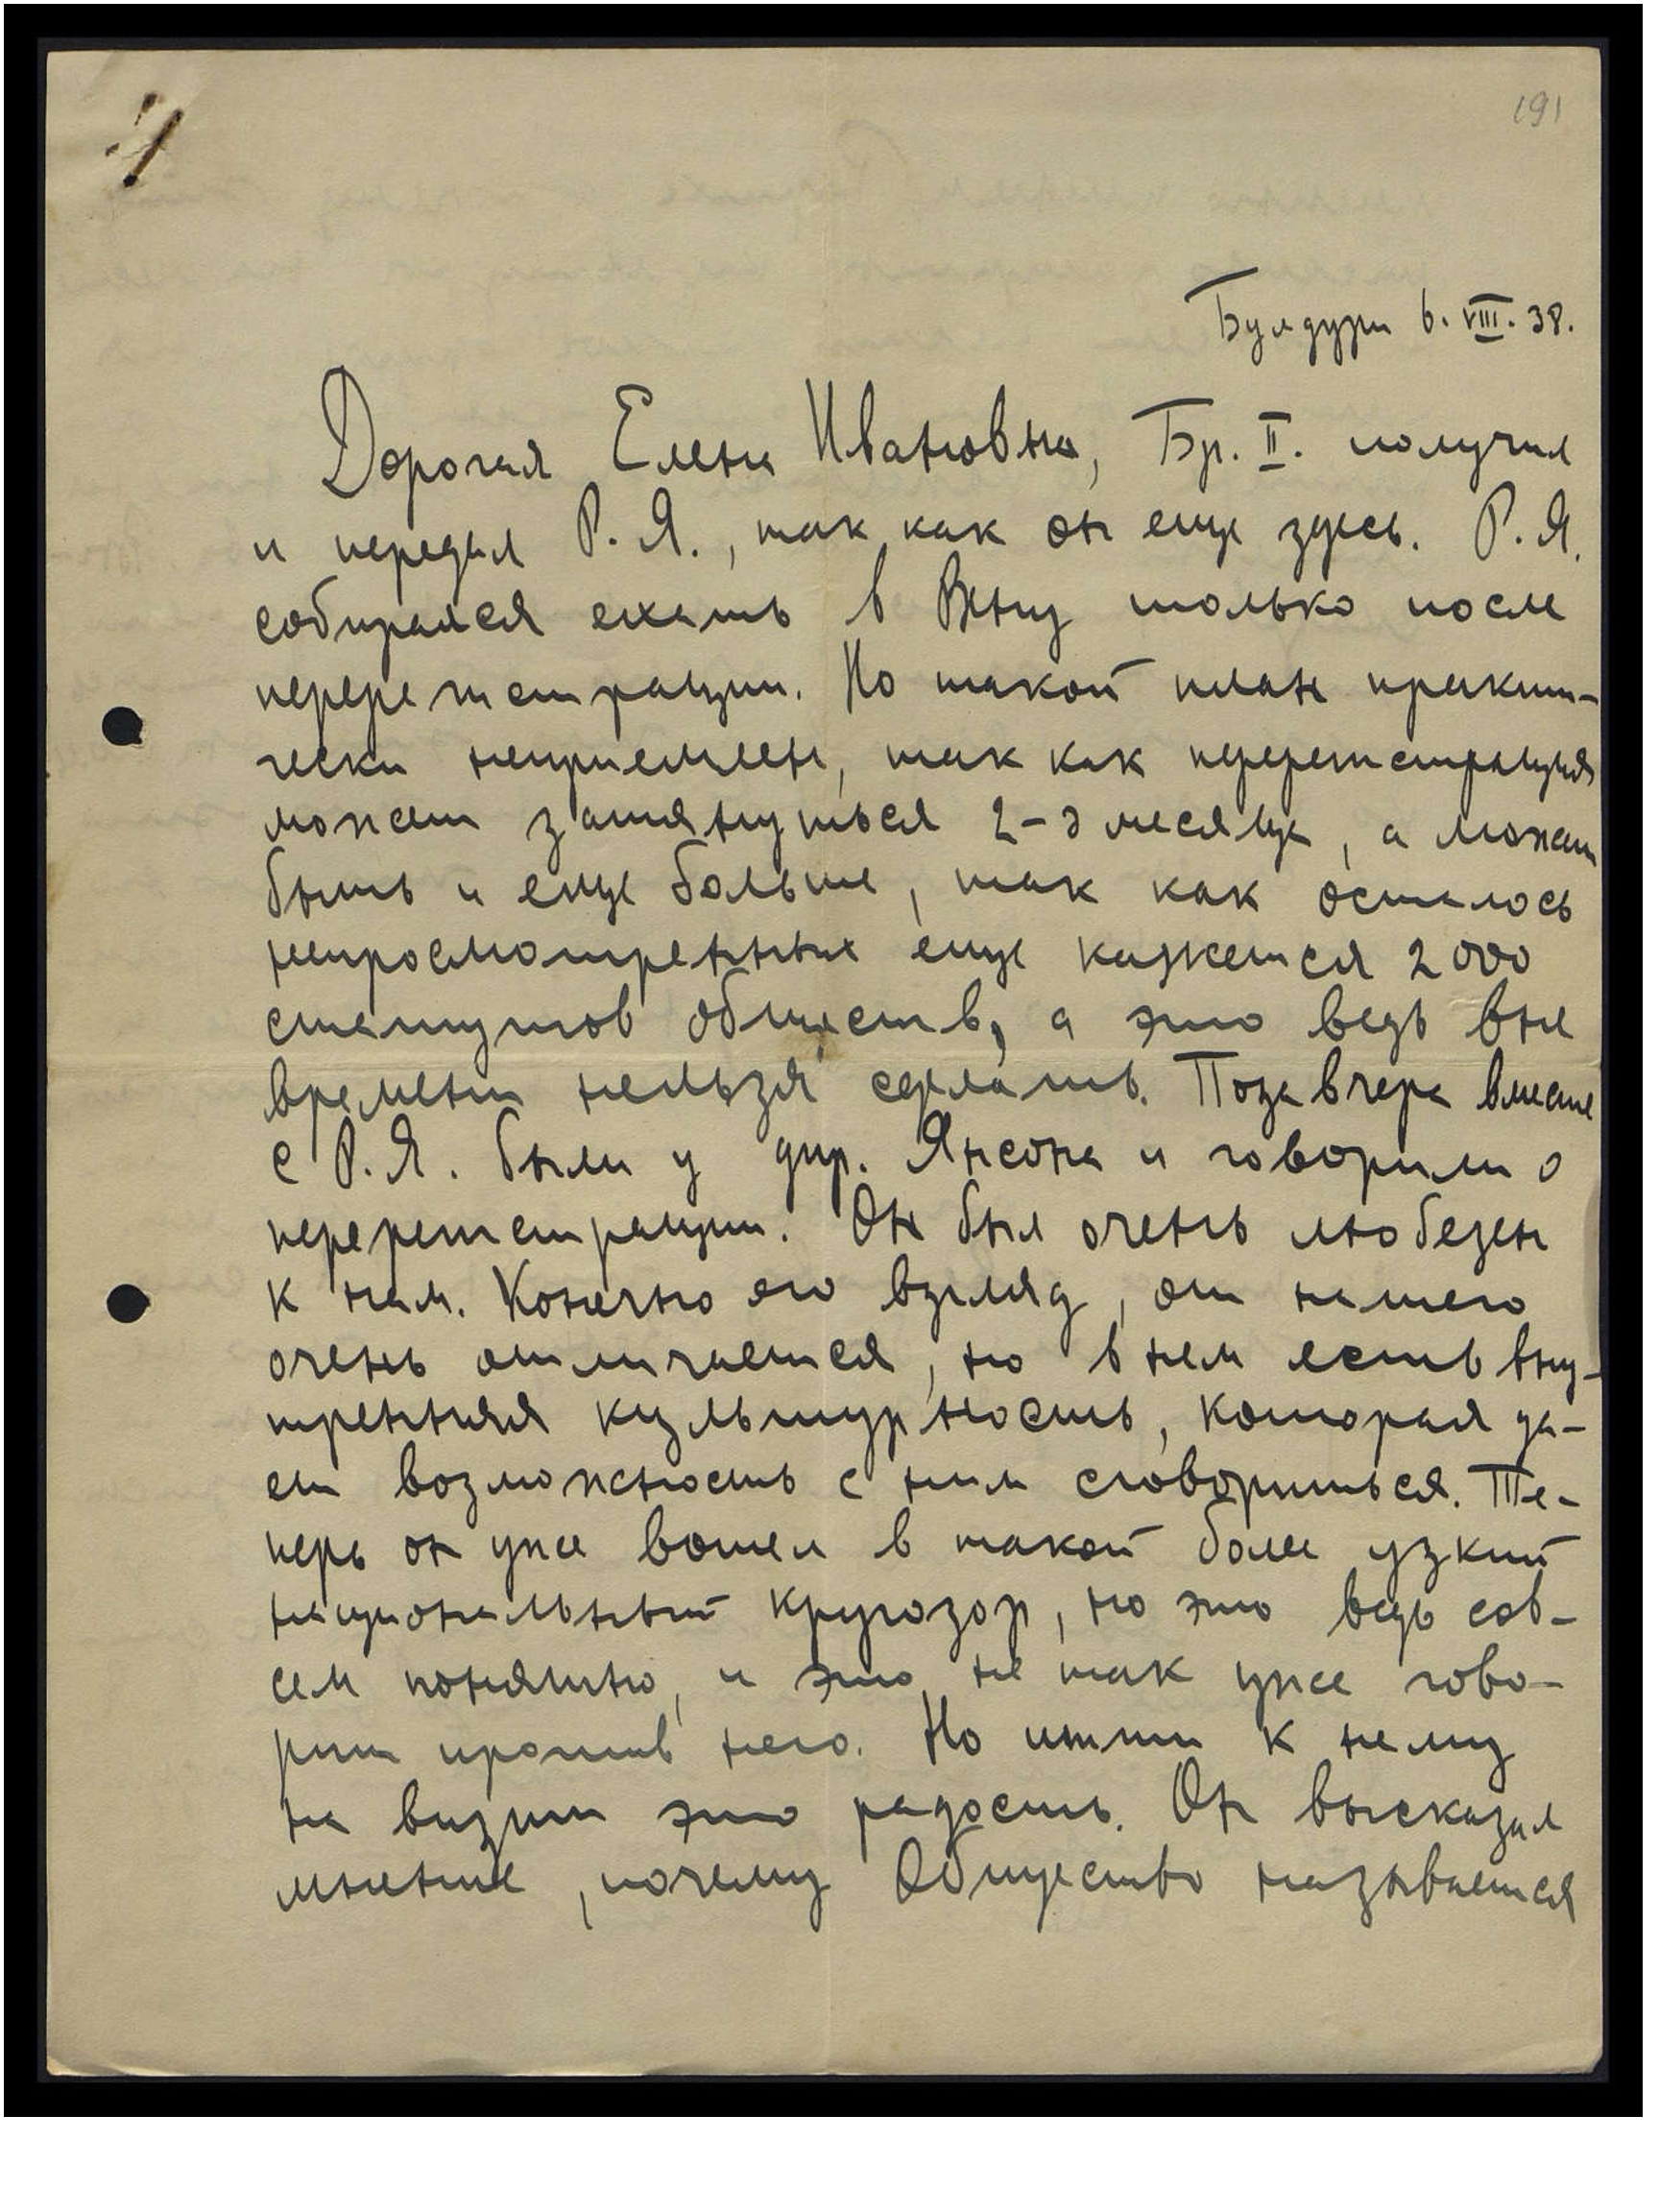 191
Булдури 6.VIII.38.
Дорогая Елена Ивановна, Бр. II. получил
и передал Р.Я., так как он еще здесь. Р.Я.
собирался ехать в Вену только после
перерегистрации. Но такой план практи-
чески неприемлем, так как перерегистрация
может затянуться 2-3 месяца, а может
быть и еще больше, так как осталось
непросмотренных еще кажется 2000
статутов обществ, а это ведь вне
времени нельзя сделать. Позавчера вместе
с Р.Я. были у дир. Янсона и говорили о
перерегистрации. Он был очень любезен
к нам. Конечно его взгляд, от нашего
очень отличается, но в нем есть вну-
тренняя культурность, которая да-
ет возможность с ним сговориться. Те-
перь он уже вошел в такой более узкий
национальный кругозор, но это ведь сов-
сем понятно, и это не так уже гово-
рит против него. Но итти к нему
на визит это радость. Он высказал
мнение, почему Общество называется